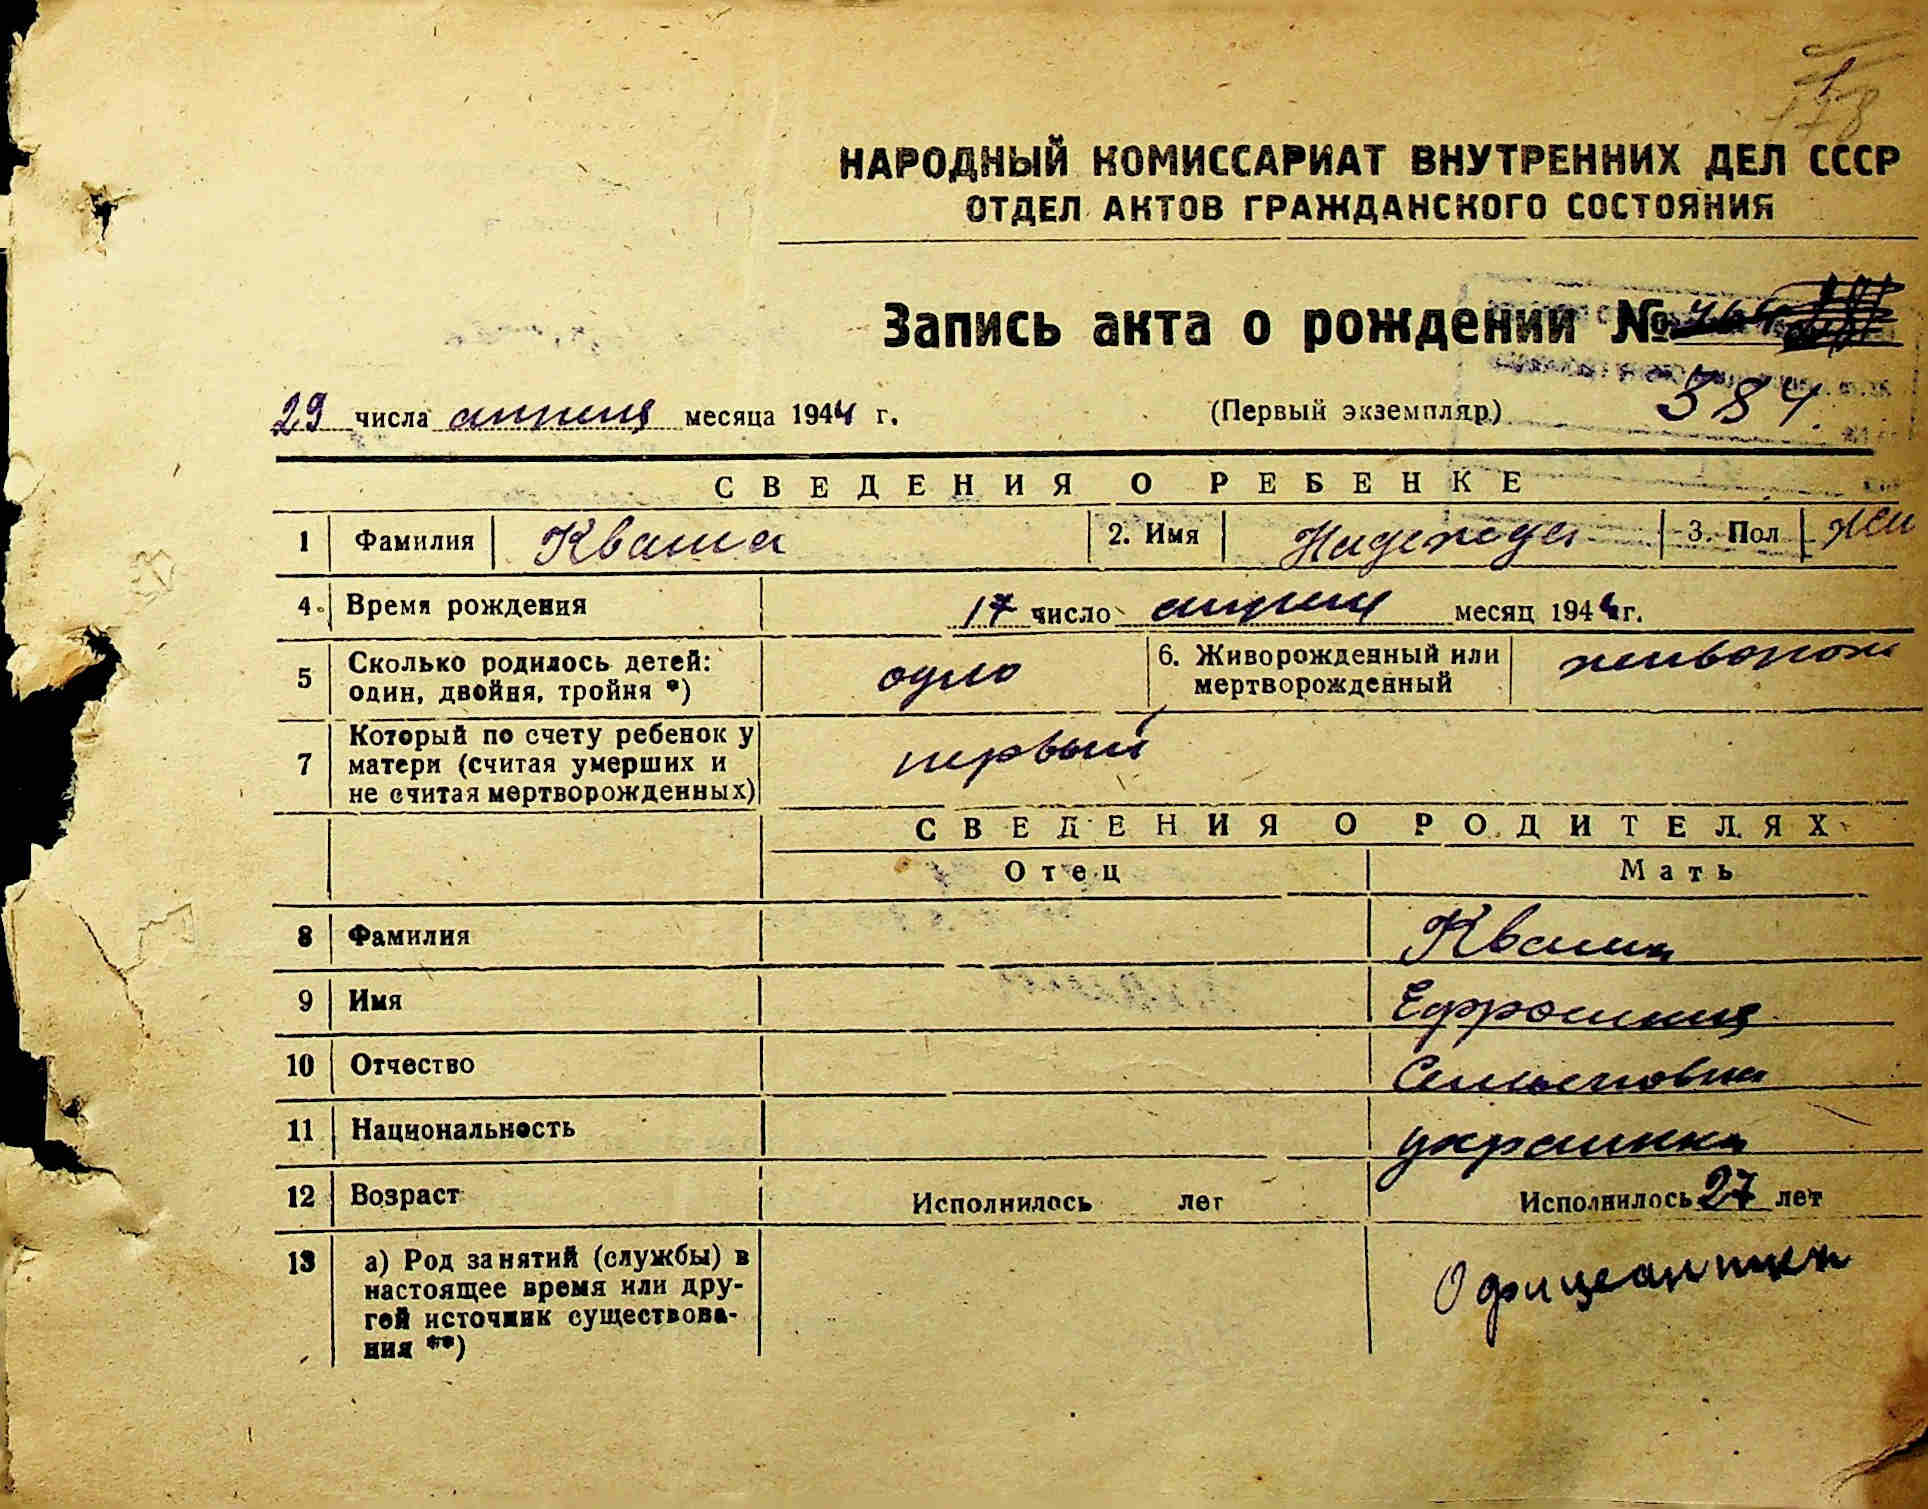 178
НАРОДНЫЙ КОМИССАРИАТ ВНУТРЕННИХ ДЕЛ СССР
ОТДЕЛ АКТОВ ГРАЖДАНСКОГО СОСТОЯНИЯ
Запись акта о рождении №
29 числа апреля месяца 1944 г. (Первый экземпляр) 384
СВЕДЕНИЯ О РЕБЕНКЕ
1 Фамилия Кваша 2. Имя Надежда 3. Пол жен
4. Время рождения 17 число апреля месяц 1944 г.
5 Сколько родилось детей: один, двойня, тройня *) одно 6. Живорожденный или мертворожденный живорож
7 Который по счету ребенок у матери (считая умерших и не считая мертворожденных) первый
СВЕДЕНИЯ О РОДИТЕЛЯХ
Отец Мать
8 Фамилия Кваша
9 Имя Ефросиния
10 Отчество Семеновна
11 Национальность украинка
12 Возраст Исполнилось лет Исполнилось 27 лет
13 а) Род занятий (службы) в настоящее время или другой источник существования **) Официантка